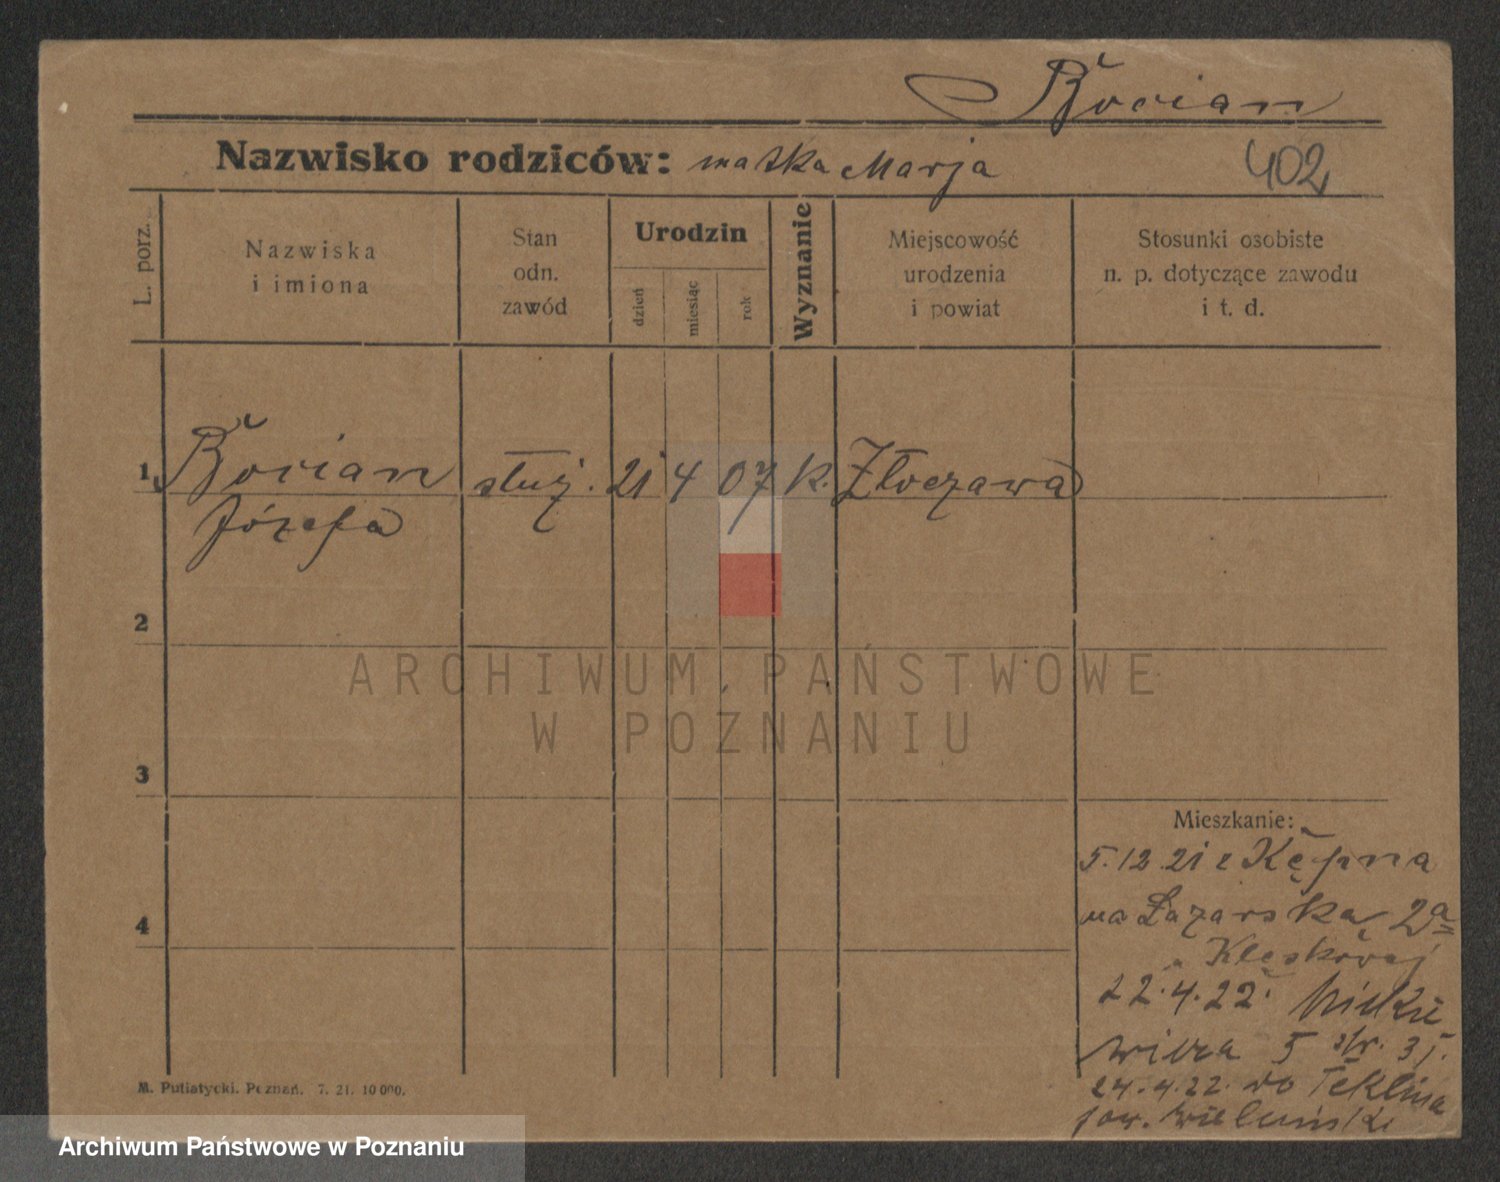 Bocian
Nazwisko rodziców: matka Marja
402
L. porz.
Nazwiska
i imiona
Stan
odn.
zawód
Urodzin
dzień
miesiąc
rok
Wyznanie
Miejscowość
urodzenia
i powiat
Stosunki osobiste
n. p. dotyczące zawodu
i t. d.
1. Bocian służ. 21 4 07 k. Złoczawa
Józefa
2
3
4
ARCHIWUM PAŃSTWOWE
W POZNANIU
Mieszkanie:
5.12.21 z Kępna
na Łazarska 2a
22.4.22.
5 str. 31.
24.4.22. do Teklina
pow. Wieluński
M. Putiatycki. Poznań. 7. 21. 10 000.
Archiwum Państwowe w Poznaniu